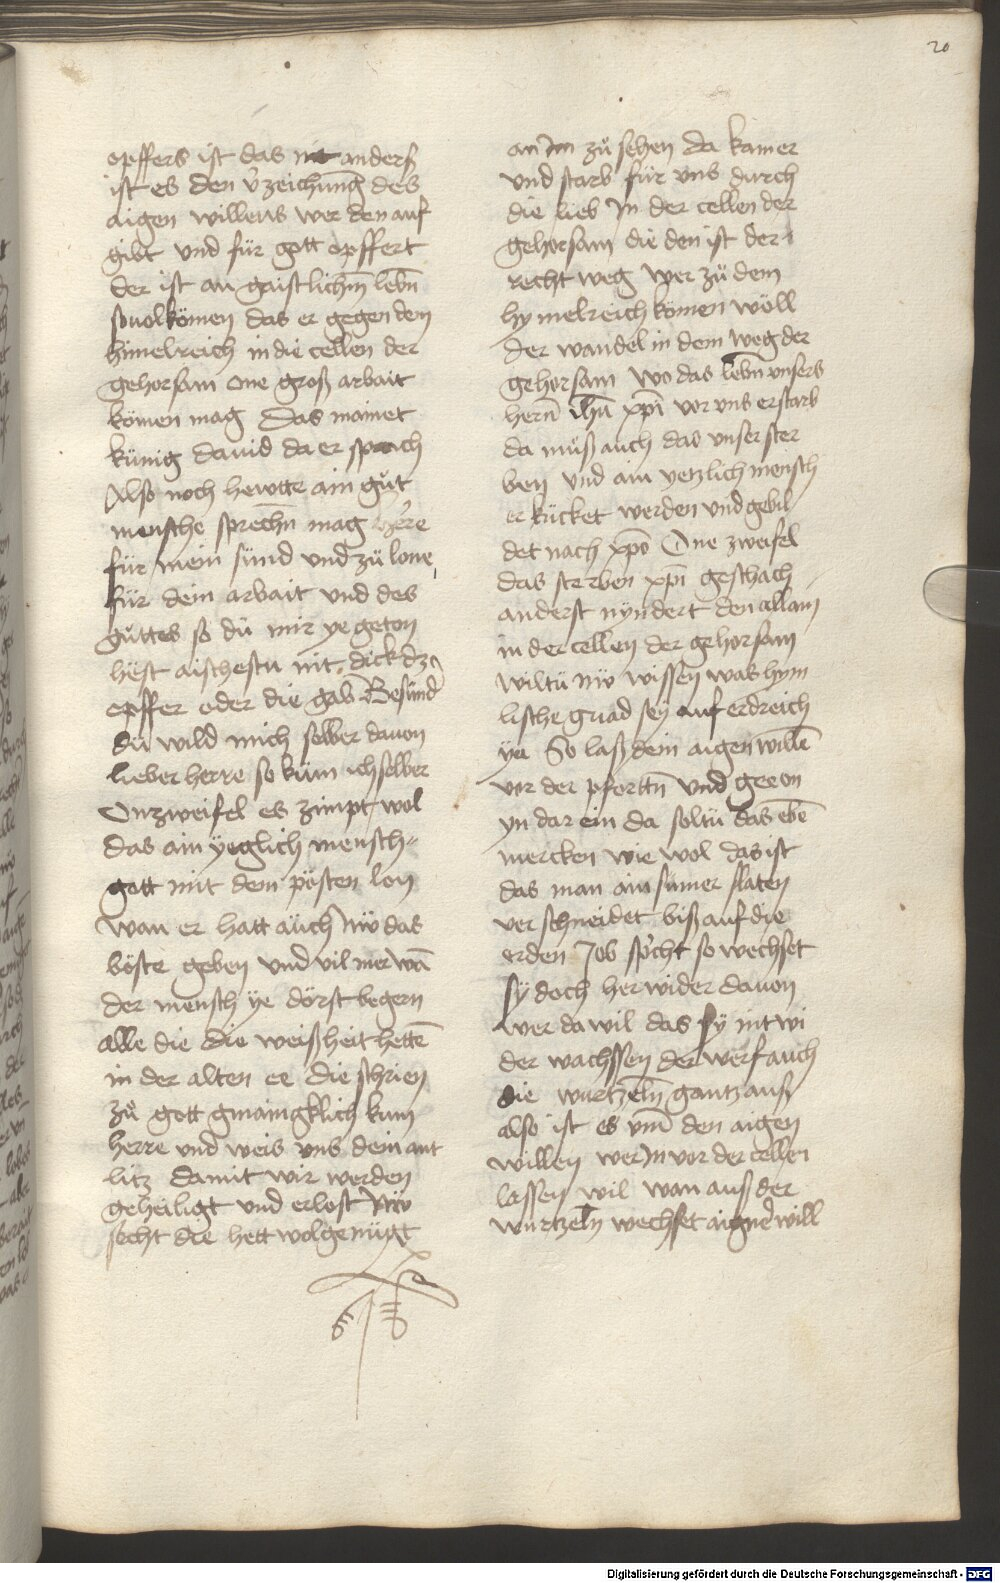 20
opffers ist das nit anders
ist es den v̉zeichunḡ des
aigen willens wer den auf
gibt vnd für gott opffert
der ist an gaistlichm̄ lebn̄
so uolkömen das er gegen dem
himelreich in die cellen der
gehorsam one groß arbait
kömen mag Das mainet
künig dauid da er sprach
Also noch hewtte ain gůt
mensche sprechn̄ mag here
für mein sünd vnd zů lone
für dein arbait vnd des
gůttes so dů mir ye geton
hest aischestu nit dick dz
opffer oder die gab Besund̄
dů wild mich selber dauon
lieber herre so küm ich selber
Onzweifel es zimpt wol
das ain yeglich mensch
gott mit dem pösten lon
wan er hatt auch nw das
böste geben vnd vil mer wā
der mensch ye dörst begern
alle die die weißheit hettē
in der alten ee die schrien
zů gott gmaingklich kum
herre vnd weis vns dein ant
litz damit wir werden
geheiligt vnd erlost Nw
secht die hett wol genügt
an Im zů sehen da kam er
vnd starb für vns durch
die lieb In der cellen der
gehorsam die den ist der
recht weg wer zů dem
hymelreich kömen wöll
der wandel in dem weg der
gehorsam wo das lebn̄ vnsers
hern̄ ihū xp̄i vor vns erstarb
da můß auch das vnser ster
ben vnd ain yetzlich mensch
er kücket werden vnd gebil
det nach xp̄o One zweifel
das sterben xp̄i geschach
anderst nyndert den allain
in der cellen der gehorsam
wiltü nw wissen was hym
lische gnad sey auf erdreich
ye So laß dein aigen willē
vor der pforttn̄ vnd gee on
yn dar ein da soltü das ebē
mercken wie wol das ist
das man ain sumer slaten
ver schneidet biß auf die
erden Job spͨcht so wechset
sy doch her wider dauon
wer da wil das sy nit wi
der wachssen der werf auch
die wurtzeln̄ gantz auß
also ist es vm̄ den aigen
willen wer In vor der cellen
lassen wil wan auß der
wurtzeln wechset aigner will
Digitalisierung gefördert durch die Deutsche Forschungsgemeinschaft - DFG